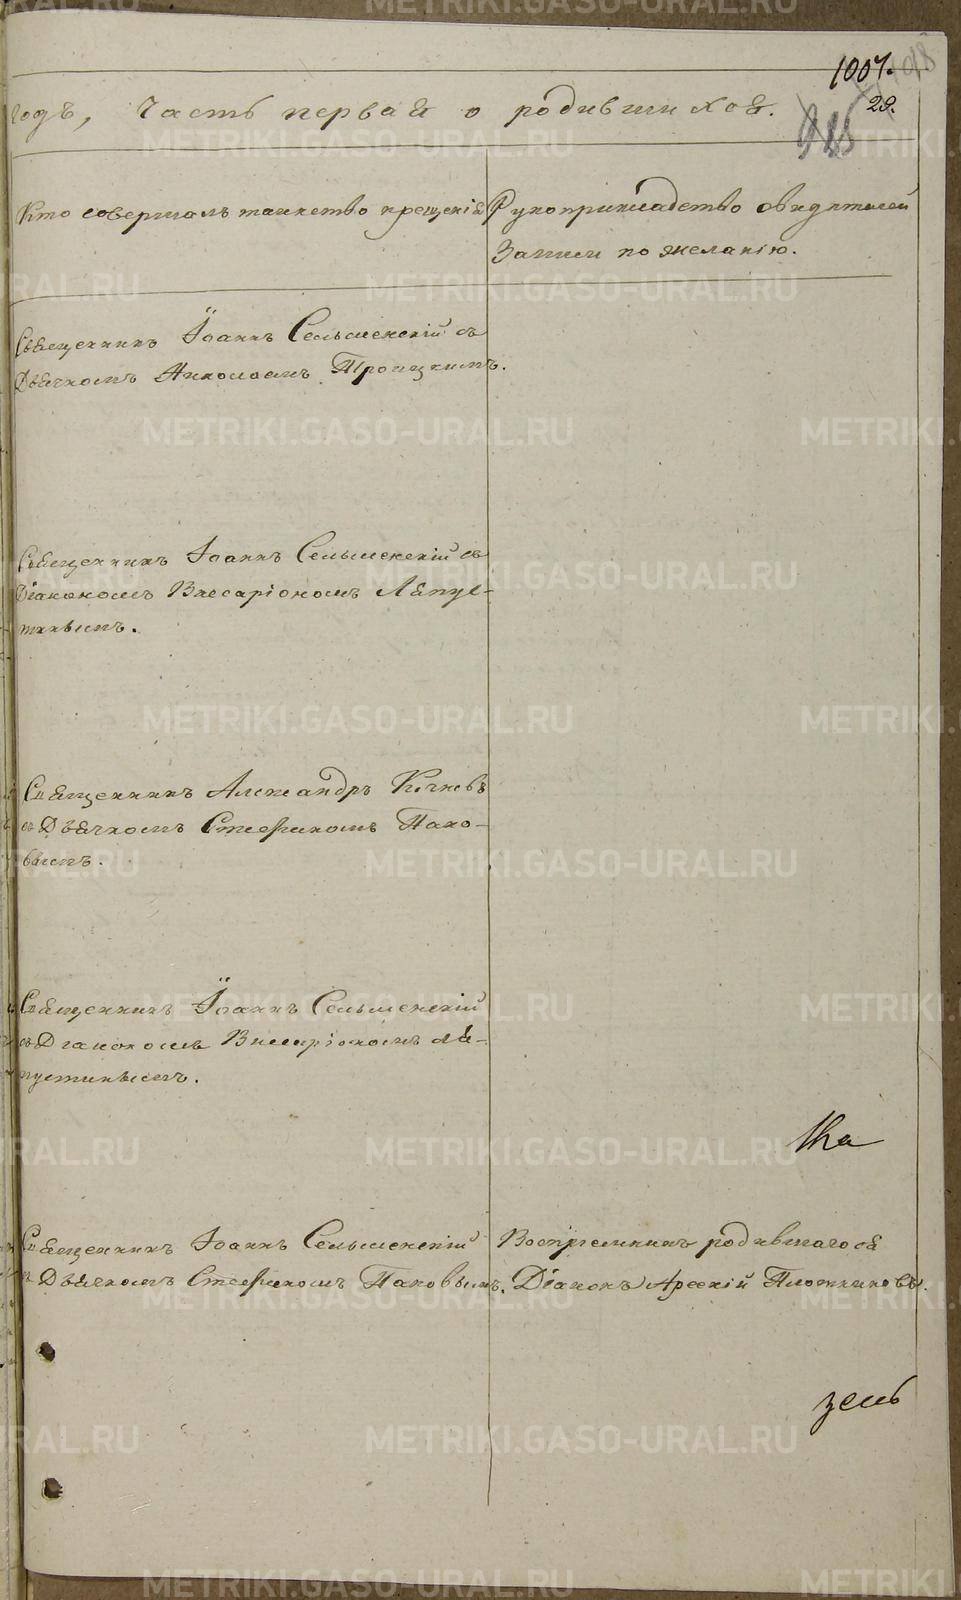 1007.
29.
годъ, Часть первая о родившихся.
Кто совершалъ таинство крещенія
Рукоприкладство свидѣтелей
записи по желанію.
Священникъ Іоаннъ Сельменскій съ
Дьячкомъ Николаемъ Троицкимъ.
Священникъ Іоаннъ Сельменскій съ
Діакономъ Виссаріономъ Ляпус-
тинымъ.
Священникъ Александръ
съ Дьячкомъ Стефаномъ Пано-
вымъ.
Священникъ Іоаннъ Сельменскій
съ Діакономъ Виссаріономъ Ля-
пустинымъ.
Священникъ Іоаннъ Сельменскій
съ Дьячкомъ Стефаномъ Пановымъ.
Воспріемникъ родившагося
Діаконъ Арсеній Плотниковъ.
METRIKI.GASO-URAL.RU